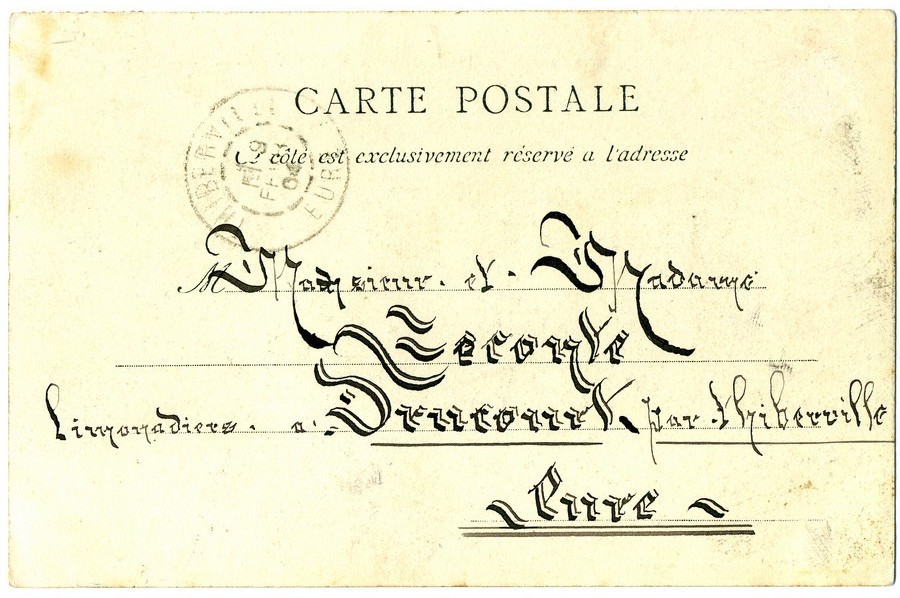 CARTE POSTALE
Ce côté est exclusivement réservé a l'adresse
THIBERVILLE
9
FEVR
04
EURE
M Monsieur. et. Madame
Lecomte
Limonadiers. a. Drucourt par Thiberville
Eure